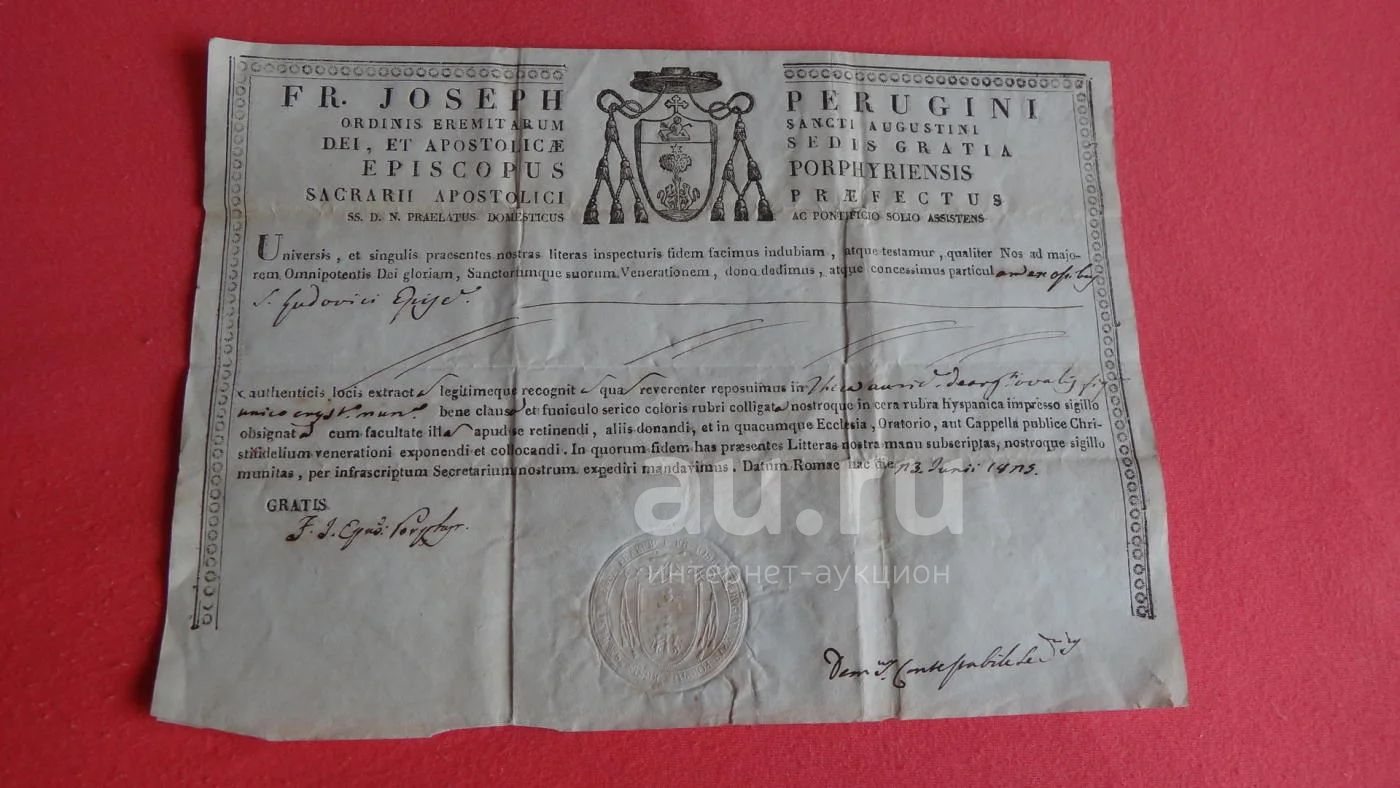 FR. JOSEPH PERUGINI
ORDINIS EREMITARUM SANCTI AUGUSTINI
DEI, ET APOSTOLICÆ SEDIS GRATIA
EPISCOPUS PORPHYRIENSIS
SACRARII APOSTOLICI PRÆFECTUS
SS. D. N. PRAELATUS DOMESTICUS AC PONTIFICIO SOLIO ASSISTENS
Universis, et singulis praesentes nostras literas inspecturis fidem facimus indubiam, atque testamur, qualiter Nos ad majo-
rem Omnipotentis Dei gloriam, Sanctorumque suorum Venerationem, dono dedimus, atque concessimus particulam ex
S. Ludovici
x authenticis locis extract legitimeque recognit qua reverenter reposuimus in theca
unico bene claus et funiculo serico coloris rubri colligat nostroque in cera rubra hyspanica impresso sigillo
obsignat cum facultate illa apud se retinendi, aliis donandi, et in quacumque Ecclesia, Oratorio, aut Cappella publice Chri-
stifidelium venerationi exponendi et collocandi. In quorum fidem has præsentes Litteras nostra manu subscriptas, nostroque sigillo
munitas, per infrascriptum Secretarium nostrum expediri mandavimus. Datum Romae hac die Junii
GRATIS
au.ru
интернет-аукцион